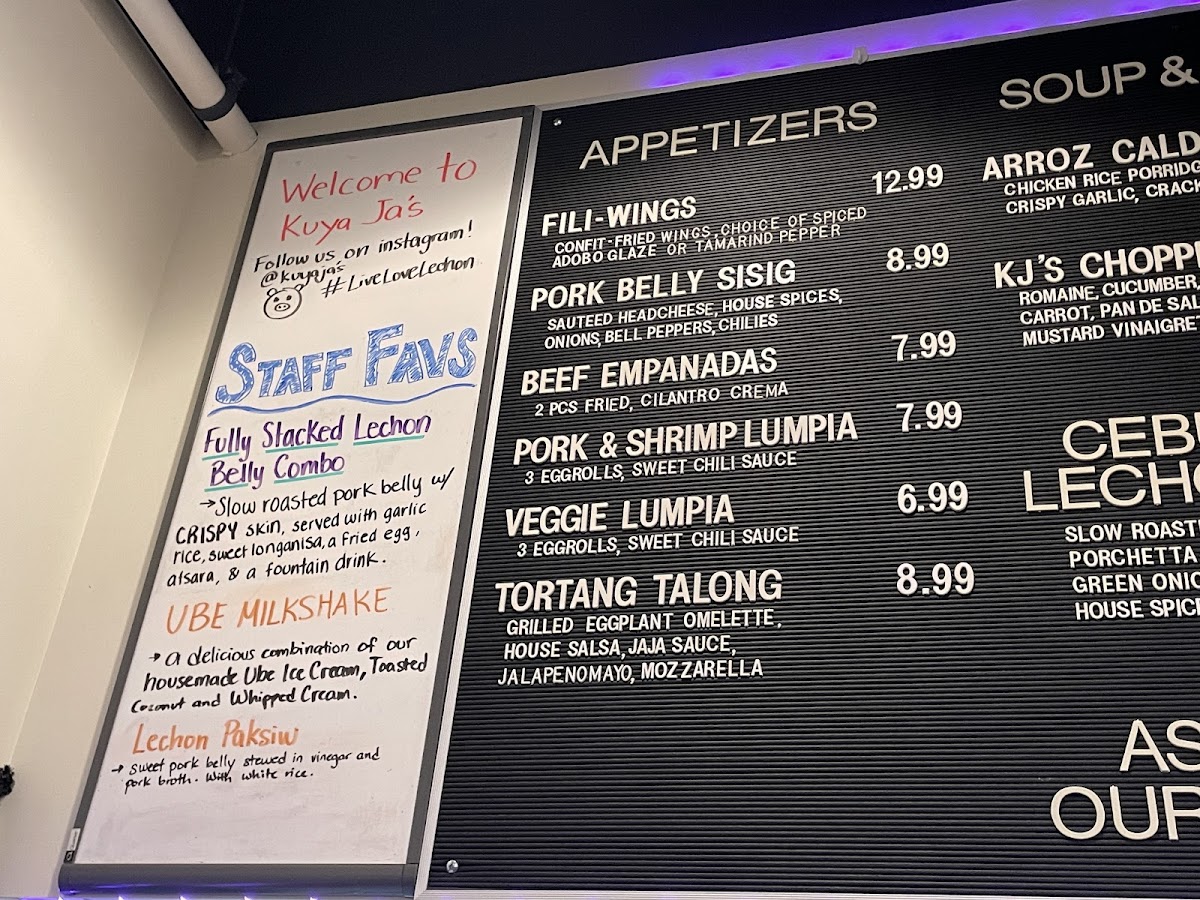 Welcome to
Kuya Ja's
Follow us on instagram!
@kuyaja's
#LiveLoveLechon
STAFF FAVS
Fully Stacked Lechon
Belly Combo
→Slow roasted pork belly w/
CRISPY skin, served with garlic
rice, sweet longanisa, a fried egg,
atsara, & a fountain drink.
UBE MILKSHAKE
→ a delicious combination of our
housemade Ube Ice Cream, Toasted
Coconut and Whipped Cream.
Lechon Paksiw
→ sweet pork belly stewed in vinegar and
pork broth. With white rice.
APPETIZERS
FILI-WINGS 12.99
CONFIT-FRIED WINGS, CHOICE OF SPICED
ADOBO GLAZE OR TAMARIND PEPPER
PORK BELLY SISIG 8.99
SAUTEED HEADCHEESE, HOUSE SPICES,
ONIONS, BELL PEPPERS, CHILIES
BEEF EMPANADAS 7.99
2 PCS FRIED, CILANTRO CREMA
PORK & SHRIMP LUMPIA 7.99
3 EGGROLLS, SWEET CHILI SAUCE
VEGGIE LUMPIA 6.99
3 EGGROLLS, SWEET CHILI SAUCE
TORTANG TALONG 8.99
GRILLED EGGPLANT OMELETTE,
HOUSE SALSA, JAJA SAUCE,
JALAPENOMAYO, MOZZARELLA
SOUP &
ARROZ CALD
CHICKEN RICE PORRIDG
CRISPY GARLIC, CRACK
KJ'S CHOPP
ROMAINE, CUCUMBER,
CARROT, PAN DE SAL
MUSTARD VINAIGRET
CEB
LECHO
SLOW ROAST
PORCHETTA
GREEN ONIO
HOUSE SPIC
AS
OUR